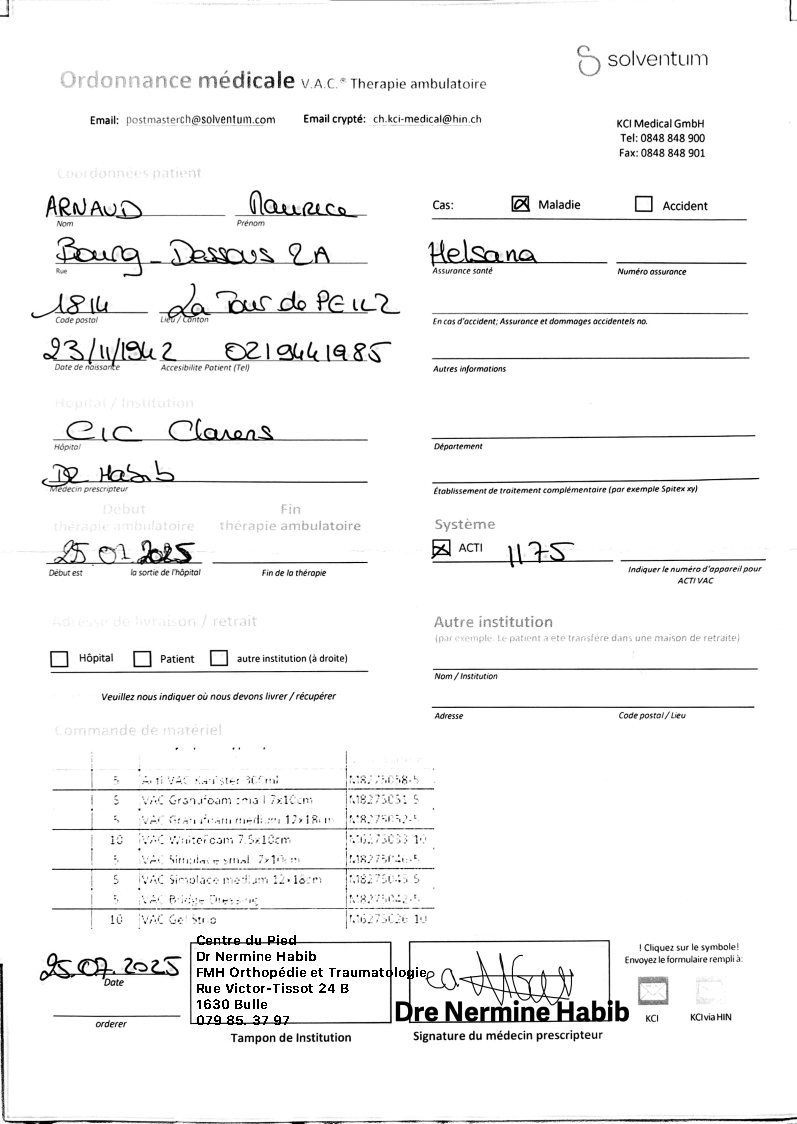 solventum
Ordonnance médicale V.A.C.® Therapie ambulatoire
Email: postmasterch@solventum.com Email crypté: ch.kci-medical@hin.ch
KCI Medical GmbH
Tel: 0848 848 900
Fax: 0848 848 901
Coordonnées patient
ARNAUD Maurice
Nom Prénom
Cas: Maladie Accident
Bourg-Dessous 2A
Rue
Helsana
Assurance santé Numéro assurance
1814 La Tour de PEILZ
Code postal Lieu / Canton
En cas d'accident; Assurance et dommages accidentels no.
23/11/1942 0219441985
Date de naissance Accesibilite Patient (Tel)
Autres informations
Hopital / Institution
CIC Clarens
Hôpital
Département
DR Habib
Médecin prescripteur
Établissement de traitement complémentaire (par exemple Spitex xy)
Début
thérapie ambulatoire
Fin
thérapie ambulatoire
25 07 2025
Début est la sortie de l'hôpital Fin de la thérapie
Système
ACTI 1175
Indiquer le numéro d'appareil pour
ACTI VAC
Adresse de livraison / retrait
Hôpital Patient autre institution (à droite)
Veuillez nous indiquer où nous devons livrer / récupérer
Autre institution
(par exemple. Le patient a été transféré dans une maison de retraite)
Nom / Institution
Adresse Code postal / Lieu
Commande de matériel
5 Acti VAC Kanister 300ml M8275058-5
5 VAC Granufoam small 7x10cm M8275051-5
5 VAC Granufoam medium 12x18cm M8275052-5
10 VAC WhiteFoam 7.5x10cm M6275033-10
5 VAC Simplace small 7x10cm M8275046-5
5 VAC Simplace medium 12x18cm M8275045-5
5 VAC Bridge Dressing M8275042-5
10 VAC Gel Strip M6275026-10
25.07.2025
Date
orderer
Centre du Pied
Dr Nermine Habib
FMH Orthopédie et Traumatologie
Rue Victor-Tissot 24 B
1630 Bulle
079 85. 37 97
Tampon de Institution
Dre Nermine Habib
Signature du médecin prescripteur
! Cliquez sur le symbole!
Envoyez le formulaire rempli à:
KCI KCI via HIN